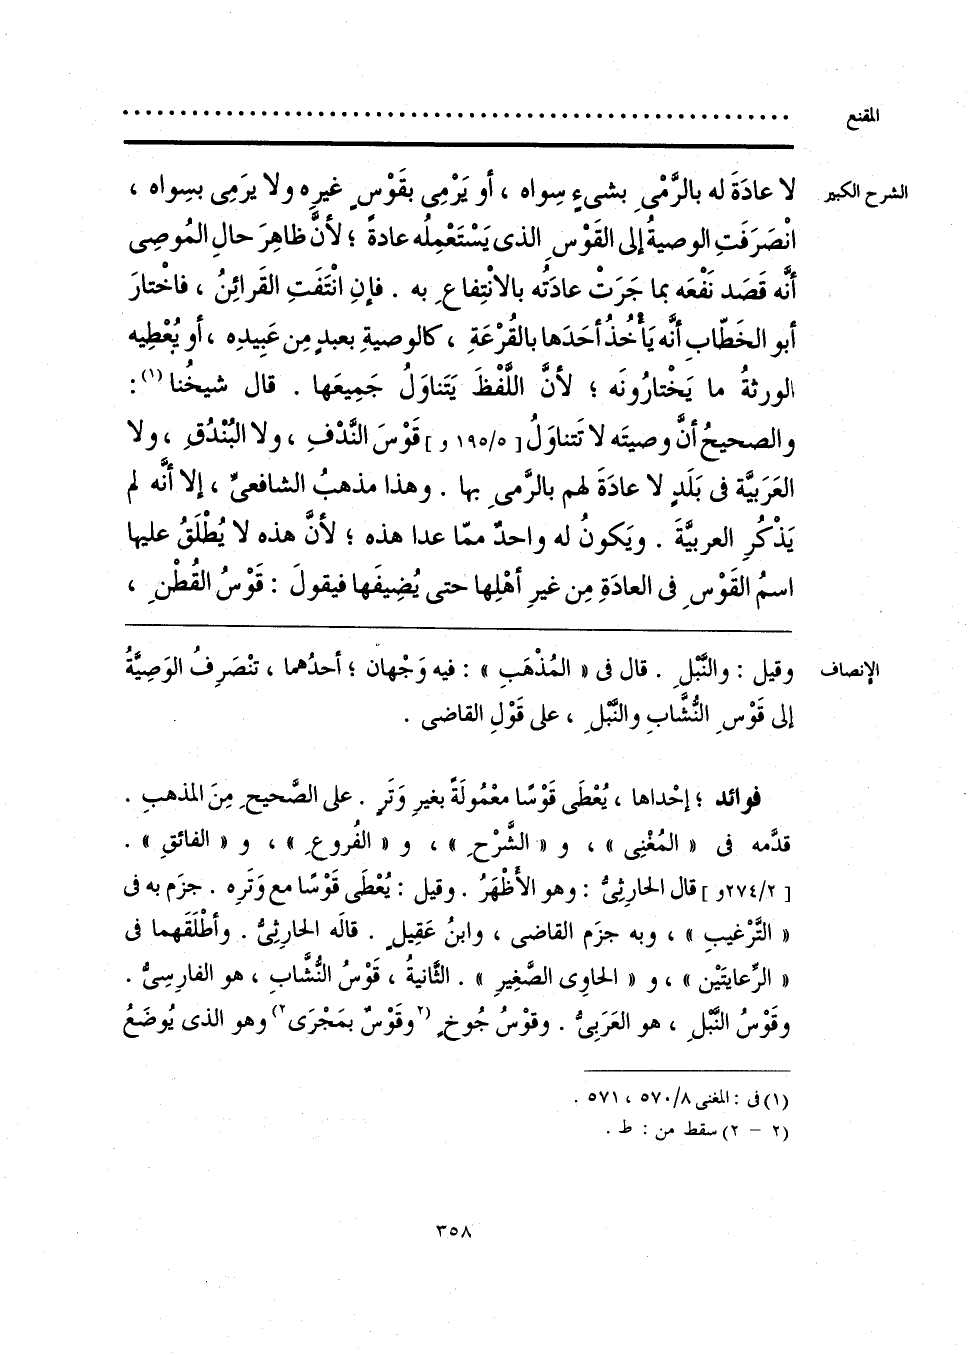 المقنع ........................................................
الشرح الكبير لا عادَةَ له بالرَّمْىِ بشىءٍ سِواه ، أو يَرْمِى بقَوْسٍ غيرِه ولا يرَمِى بسِواه ،
انْصَرَفَتِ الوصيةُ إلى القَوْسِ الذى يَسْتَعْمِلُه عادةً ؛ لأنَّ ظاهِرَ حالِ المُوصِى
أنَّه قَصَد نَفْعَه بما جَرَتْ عادَتُه بالانْتِفاعِ به . فإنِ انْتَفَتِ القَرائِنُ ، فاخْتارَ
أبو الخَطّابِ أنَّه يَأْخُذُ أحَدَها بالقُرْعَةِ ، كالوصيةِ بعبدٍ مِن عَبِيدِه ، أو يُعْطِيه
الورثةُ ما يَخْتارُونَه ؛ لأنَّ اللَّفْظَ يَتَناوَلُ جَمِيعَها . قال شيخُنا(١) :
والصحيحُ أنَّ وصيتَه لا تَتناوَلُ [ ١٩٥/٥ و ] قَوْسَ النَّدْفِ ، ولا البُنْدُقِ ، ولا
العَرَبِيَّة فى بَلَدٍ لا عادَةَ لهم بالرَّمىِ بها . وهذا مذهبُ الشافعىِّ ، إلا أنَّه لم
يَذْكُرِ العربيَّةَ . ويَكونُ له واحدٌ ممّا عدا هذه ؛ لأنَّ هذه لا يُطْلَقُ عليها
اسمُ القَوْسِ فى العادَةِ مِن غيرِ أهْلِها حتى يُضِيفَها فيقولَ : قَوْسُ القُطْنِ ،
الإنصاف وقيل : والنَّبْلِ . قال فى « المُذْهَبِ » : فيه وَجْهان ؛ أحدُهما ، تنْصَرِفُ الوَصِيَّةُ
إلى قَوْسِ النُّشَّابِ والنَّبْلِ ، على قَوْلِ القاضى .
فوائد ؛ إحْداها ، يُعْطَى قَوْسًا معْمُولَةً بغيرِ وَتَرٍ . على الصَّحيحِ مِنَ المذهبِ .
قدَّمه فى « المُغْنِى » ، و « الشَّرْحِ » ، و « الفُروعِ » ، و « الفائقِ » .
[ ٢٧٤/٢و ] قال الحارثِىُّ : وهو الأَظْهَرُ . وقيل : يُعْطَى قَوْسًا مع وَتَرِه . جزَم به فى
« التَّرْغيبِ » ، وبه جزَم القاضى ، وابنُ عَقِيلٍ . قالَه الحارثِىُّ . وأطْلَقَهما فى
« الرِّعايتَيْن » ، و « الحاوِى الصَّغِيرِ » . الثَّانيةُ ، قَوْسُ النُّشَّابِ ، هو الفارِسِىُّ .
وقَوْسُ النَّبْلِ ، هو العَرَبِىُّ . وقوْسُ جُوخٍ (٢وقَوْسٌ بمَجْرَى٢) وهو الذى يُوضَعُ
(١) فى : المغنى ٥٧٠/٨ ، ٥٧١ .
(٢ - ٢) سقط من : ط .
٣٥٨